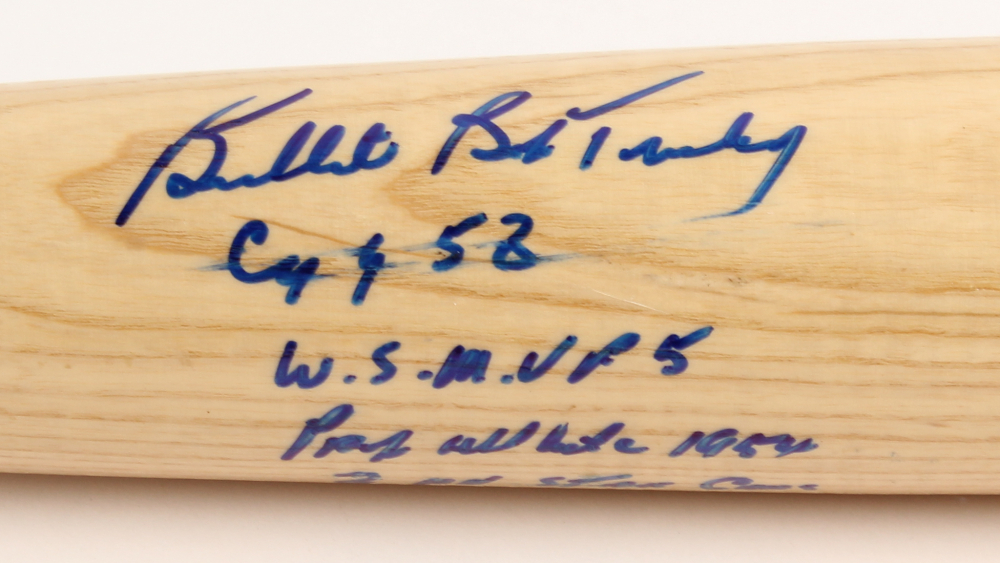 Bullet Bob Turley
Cy y 58
W.S.M.V.P 5
Prof athlete 1958